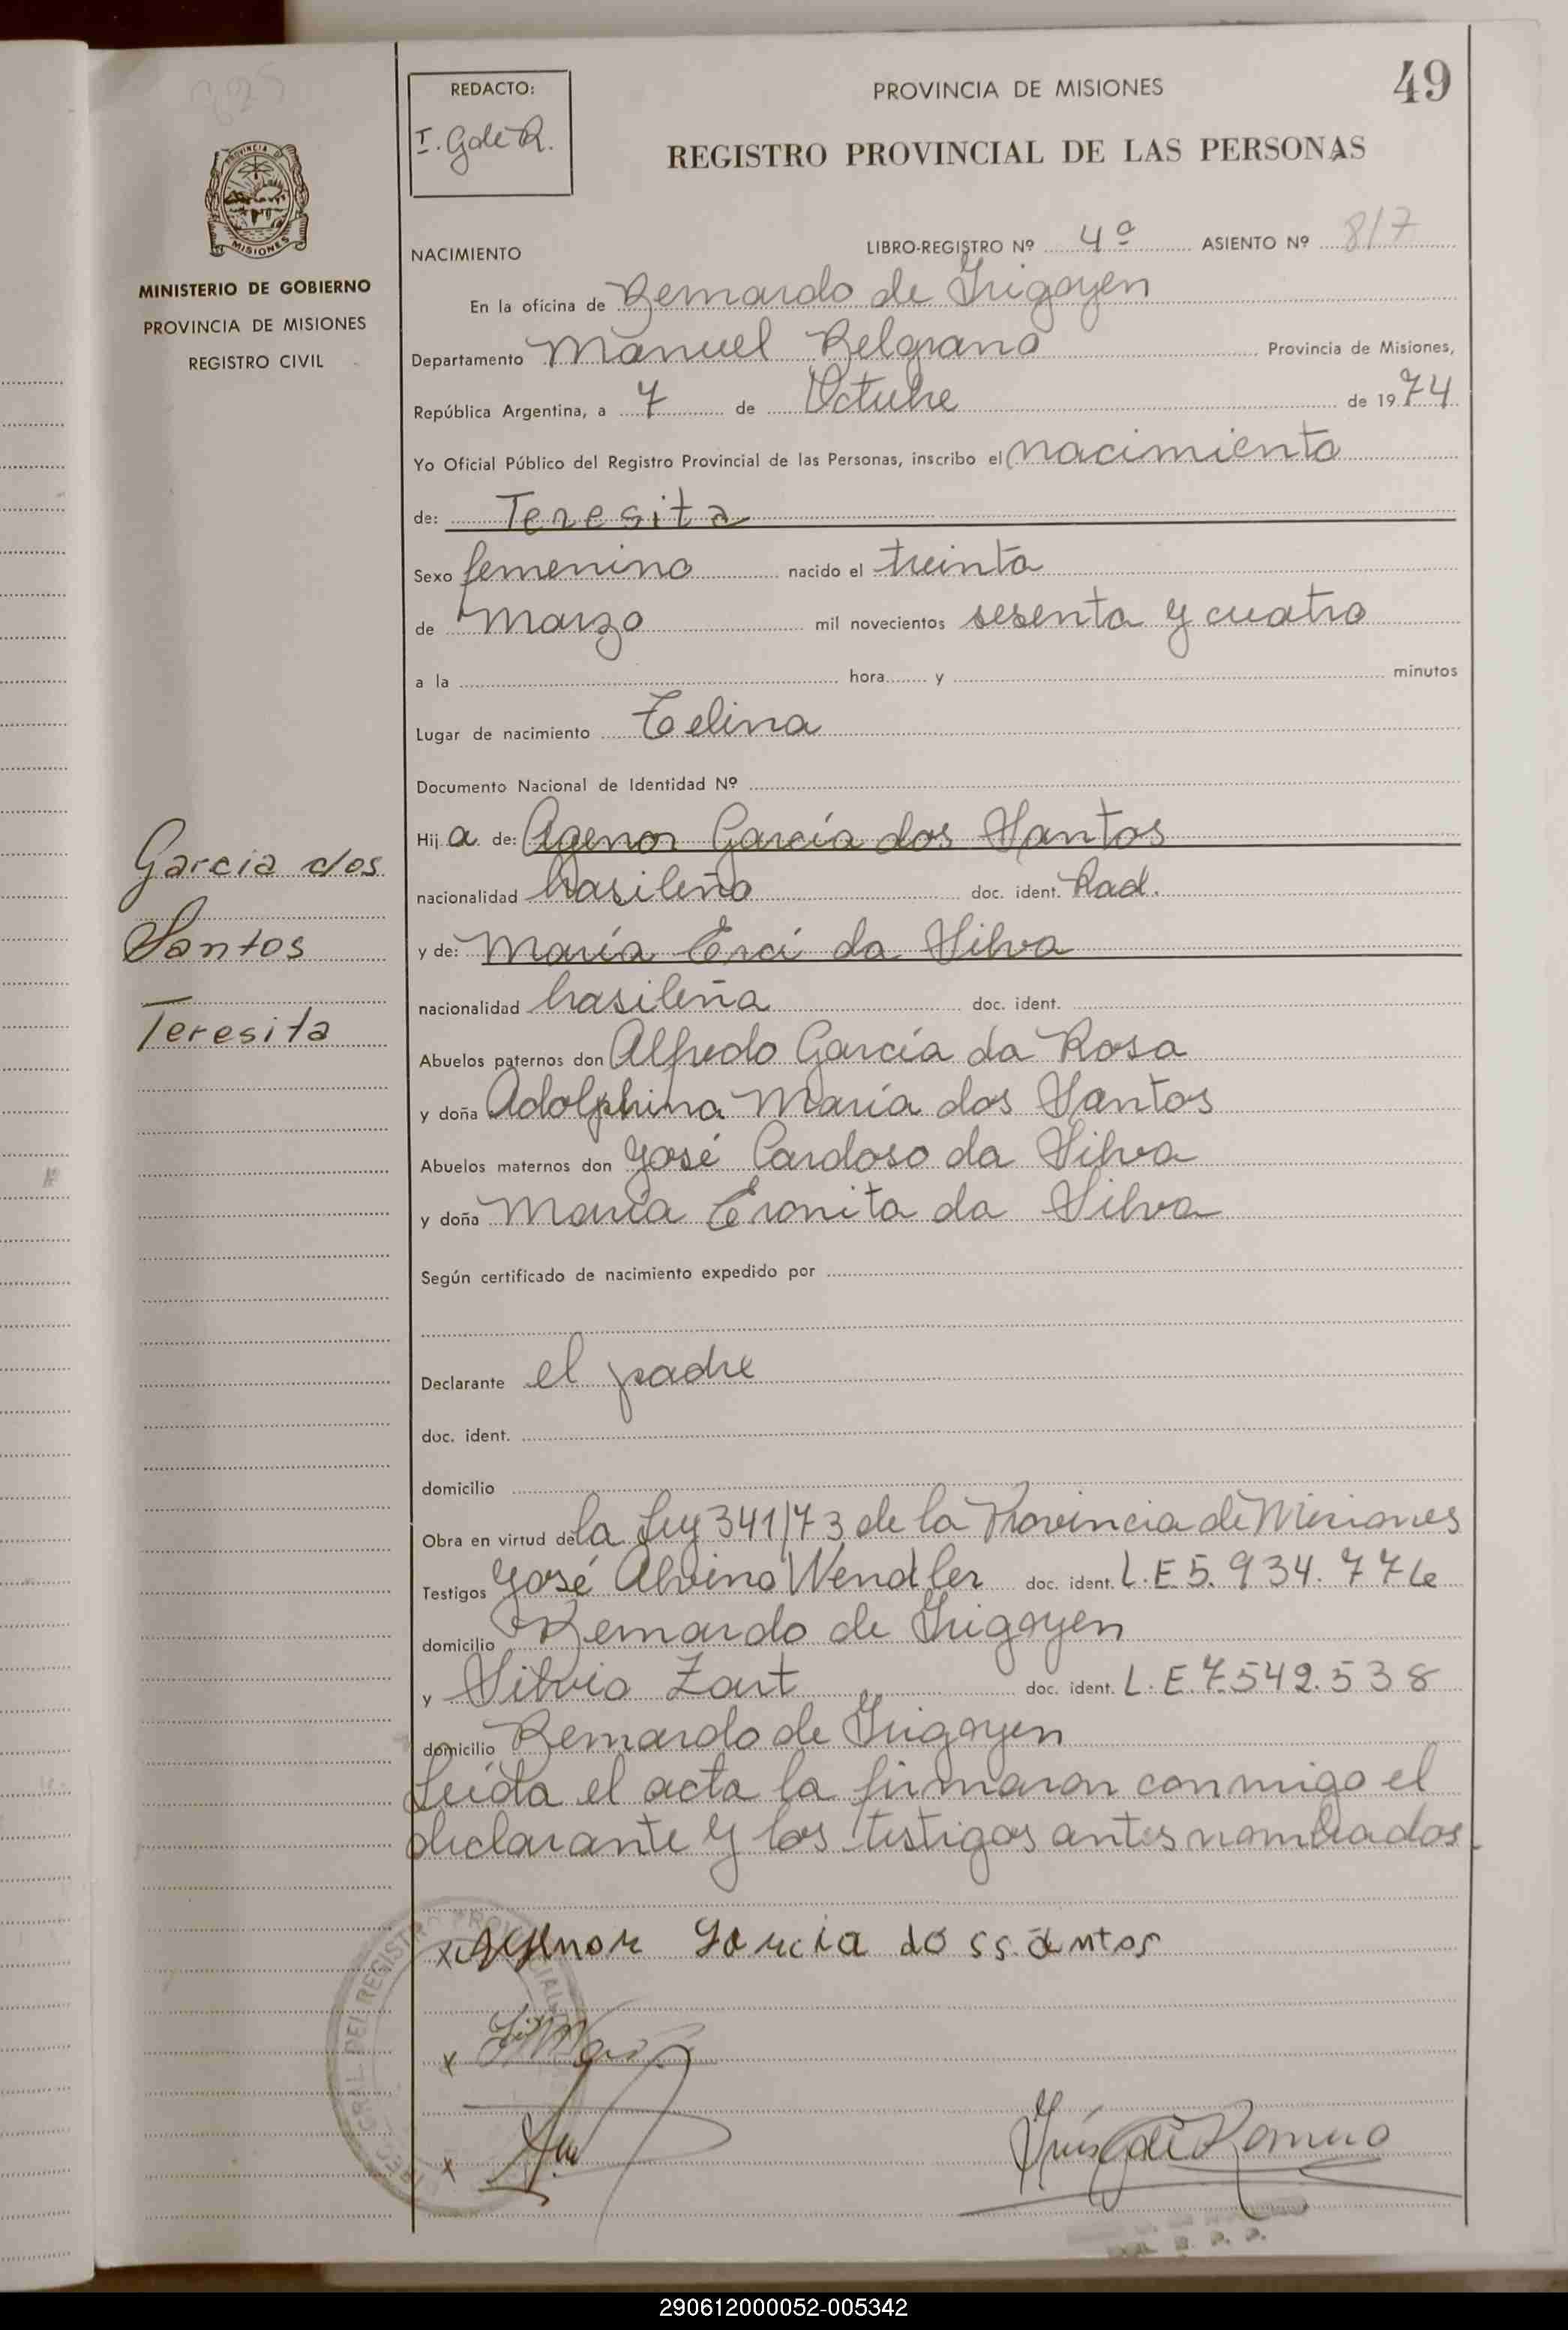 49
REDACTO:
I. Gde R.
PROVINCIA DE MISIONES
REGISTRO PROVINCIAL DE LAS PERSONAS
PROVINCIA DE
MISIONES
MINISTERIO DE GOBIERNO
PROVINCIA DE MISIONES
REGISTRO CIVIL
NACIMIENTO LIBRO-REGISTRO Nº 4º ASIENTO Nº 817
En la oficina de Bernardo de Irigoyen
Departamento Manuel Belgrano Provincia de Misiones,
República Argentina, a 7 de Octubre de 1974
Yo Oficial Público del Registro Provincial de las Personas, inscribo el nacimiento
de: Teresita
Sexo femenino nacido el treinta
de Marzo mil novecientos sesenta y cuatro
a la hora y minutos
Lugar de nacimiento Celina
Documento Nacional de Identidad Nº
Garcia dos
Santos
Teresita
Hija de: Agenor García dos Santos
nacionalidad brasileño doc. ident. Rad.
y de: María Erci da Silva
nacionalidad brasileña doc. ident.
Abuelos paternos don Alfredo García da Rosa
y doña Adolphina María dos Santos
Abuelos maternos don José Cardoso da Silva
y doña María Eronita da Silva
Según certificado de nacimiento expedido por
Declarante el padre
doc. ident.
domicilio
Obra en virtud de la Ley 341/73 de la Provincia de Misiones
Testigos José Alvino Wendler doc. ident. L.E 5.934.776
domicilio Bernardo de Irigoyen
y Silvio Zart doc. ident. L.E.7.542.538
domicilio Bernardo de Irigoyen
Leída el acta la firmaron conmigo el
declarante y los testigos antes nombrados.
x Agenor Garcia do ssantos
x
x
Inés G de Romero
290612000052-005342